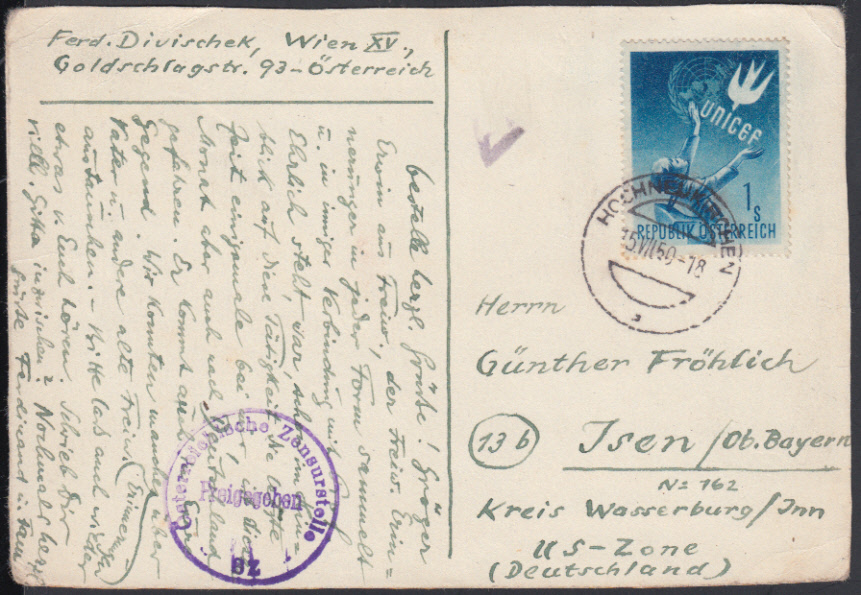 Ferd. Divischek, Wien XV.,
Goldschlagstr. 93-Österreich
bestelle herzl. Grüße! Gröger
Erwin aus Freiw., der Freiw. Erin=
nerungen in jeder Form sammelt
u. in inniger Verbindung mit
Ehrlich steht, war schon im Hin=
blick auf den Tätigkeit
Zeit einigemale bei mir,
Monat aber auch nach Deutschland
gefahren. Er kommt auch in Eure
Gegend. Wir konnten manche über
Vater u. andere alte Freiw. Erinner.
austauschen. - Bitte laß auch wieder
etwas v. Euch hören. Schrieb Dir
vielleicht Gitta inzwischen? Nochmals herzl.
Grüße Ferdinand u. Fam.
Österreichische Zensurstelle
Freigegeben
UNICEF
1 S
REPUBLIK ÖSTERREICH
HOCHNEUKIRCHEN
15.VII.50-18
a
Herrn
Günther Fröhlich
13b
Isen/Ob. Bayern
No 162
Kreis Wasserburg/Inn
US-Zone
(Deutschland)